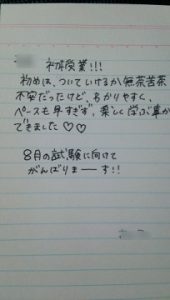 初授業!!!
初めは、ついていけるか無茶苦茶
不安だったけど、わかりやすく、
ペースも早すぎず、楽しく学ぶ事が
できました♡♡
8月の試験に向けて
がんばりまーーす!!